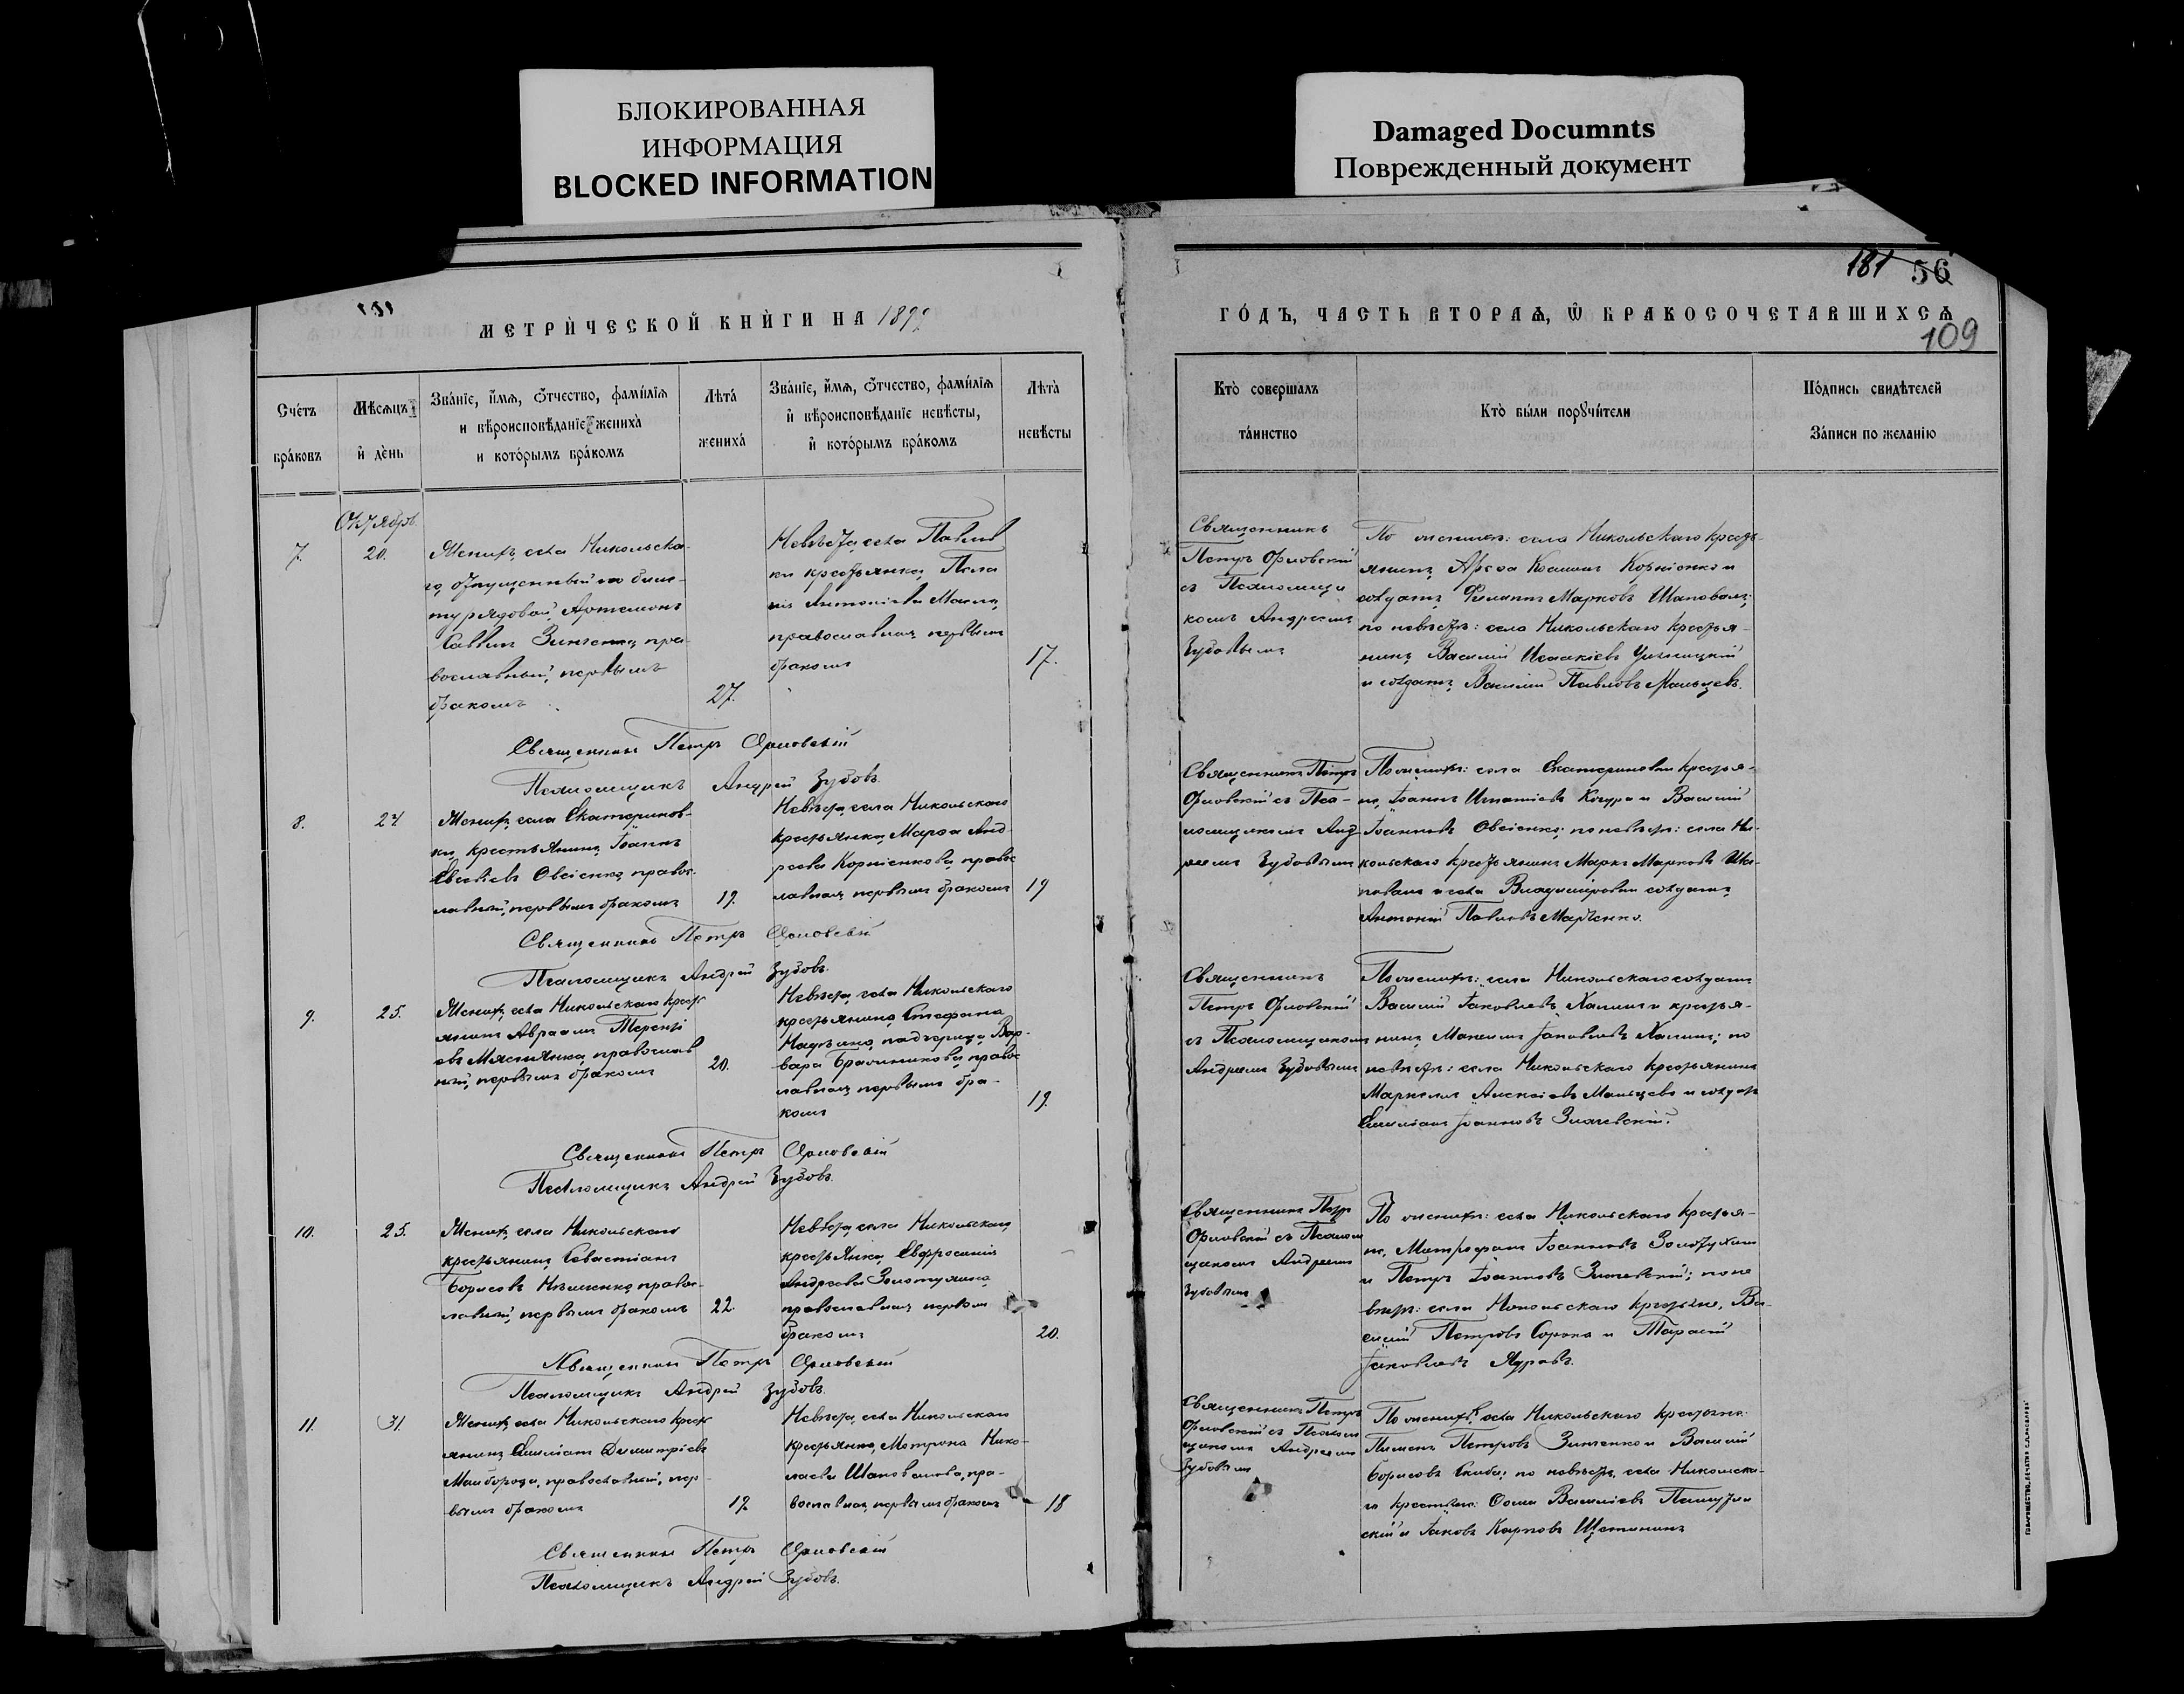 БЛОКИРОВАННАЯ
ИНФОРМАЦИЯ
BLOCKED INFORMATION
Damaged Documnts
Поврежденный документ
181 56
109
МЕТРИЧЕСКОЙ КНИГИ НА 1899
ГОДЪ, ЧАСТЬ ВТОРАЯ, Ѡ БРАКОСОЧЕТАВШИХСЯ
Счетъ браковъ
Мѣсяцъ и день
Званіе, имя, отчество, фамилія
и вѣроисповѣданіе жениха
и которымъ бракомъ
Лѣта жениха
Званіе, имя, отчество, фамилія
и вѣроисповѣданіе невѣсты,
и которымъ бракомъ
Лѣта невѣсты
Кто совершалъ таинство
Кто были поручители
Подпись свидѣтелей
Записи по желанію
Октябрь
7.
20.
Женихъ, села Никольска-
го, отпущенный по биле-
ту рядовой, Артемонъ
Саввинъ Зинченко, пра-
вославный, первымъ
бракомъ
27.
Невѣста, села Павлов
ки крестьянка, Пела
гія Антоніева
православная, первымъ
бракомъ
17.
Священникъ
Петръ Орловскій
съ Псаломщи
комъ Андреемъ
Зубовымъ
По женихѣ: села Никольскаго кресть-
янинъ, Корніенко и
солдатъ, Филиппъ Марковъ Шаповалъ;
по невѣстѣ: села Никольскаго крестья-
нинъ, Василій Исаакіевъ
и солдатъ, Василій Павловъ Мальцевъ.
Священникъ Петръ Орловскій
Псаломщикъ Андрей Зубовъ.
8.
24
Женихъ, села Екатеринов-
ки, крестьянинъ, Іоаннъ
Овсіенко, правос-
лавный, первымъ бракомъ
19.
Невѣста, села Никольскаго
крестьянка, Марфа Анд-
реева Корніенкова, правос
лавная, первымъ бракомъ
19
Священникъ Петръ
Орловскій съ Пса-
ломщикомъ Анд-
реемъ Зубовымъ
По женихѣ: села Екатериновки крестья-
не, Іоаннъ Игнатіевъ Кочура и Василій
Іоанновъ Овсіенко; по невѣстѣ: села Ни-
кольскаго крестьянинъ Маркъ Марковъ Ша-
повалъ и села Владиміровки солдатъ,
Антоній Павловъ Марченко.
Священникъ Петръ Орловскій
Псаломщикъ Андрей Зубовъ.
9.
25.
Женихъ, села Никольскаго крест
янинъ Авраамъ Теренті
евъ Мяснянкин, православ
ный, первымъ бракомъ
20.
Невѣста, села Никольскаго
крестьянина, Стефана
падчерица, Вар-
вара правос
лавная, первымъ бра-
комъ
19.
Священникъ
Петръ Орловскій
съ Псаломщикомъ
Андреемъ Зубовымъ
По женихѣ: села Никольскаго солдатъ
Василій Іаковлевъ и крестья-
нинъ, Максимъ Іаковлевъ по
невѣстѣ: села Никольскаго крестьянинъ
Маркеллъ Алексіевъ Мальцевъ и солдатъ
Емиліанъ Іоанновъ Змачевскій.
Священникъ Петръ Орловскій
Псаломщикъ Андрей Зубовъ.
10.
25.
Женихъ, села Никольскаго
крестьянинъ Севастіанъ
Борисовъ Нѣженко, правос-
лавный, первымъ бракомъ
22.
Невѣста, села Никольскаго
крестьянка, Евфросинія
Андреева Золотухина,
православная, первымъ
бракомъ
20.
Священникъ Петръ
Орловскій съ Псалом
щикомъ Андреемъ
Зубовымъ
По женихѣ: села Никольскаго крестья-
не, Митрофанъ Іоанновъ Золотухин
и Петръ Іоанновъ Змачевскій; по не
вѣстѣ: села Никольскаго крестьяне, Ва-
силій Петровъ Сорока и Тарасій
Іаковлевъ
Священникъ Петръ Орловскій
Псаломщикъ Андрей Зубовъ.
11.
31.
Женихъ, села Никольскаго крест
янинъ, Емиліанъ Димитріевъ
Майборода, православный, пер-
вымъ бракомъ
19.
Невѣста, села Никольскаго
крестьянка, Матрона Нико-
лаева Шаповалова, пра-
вославная, первымъ бракомъ
18
Священникъ Петръ
Орловскій съ Псалом
щикомъ Андреемъ
Зубовымъ
По женихѣ, села Никольскаго крестьяне:
Пименъ Петровъ Зинченко и Василій
Борисовъ Скиба; по невѣстѣ, села Никольска-
го крестьяне: Ѳома Василіевъ
скій и Іаковъ Карповъ Щетининъ
Священникъ Петръ Орловскій
Псаломщикъ Андрей Зубовъ.